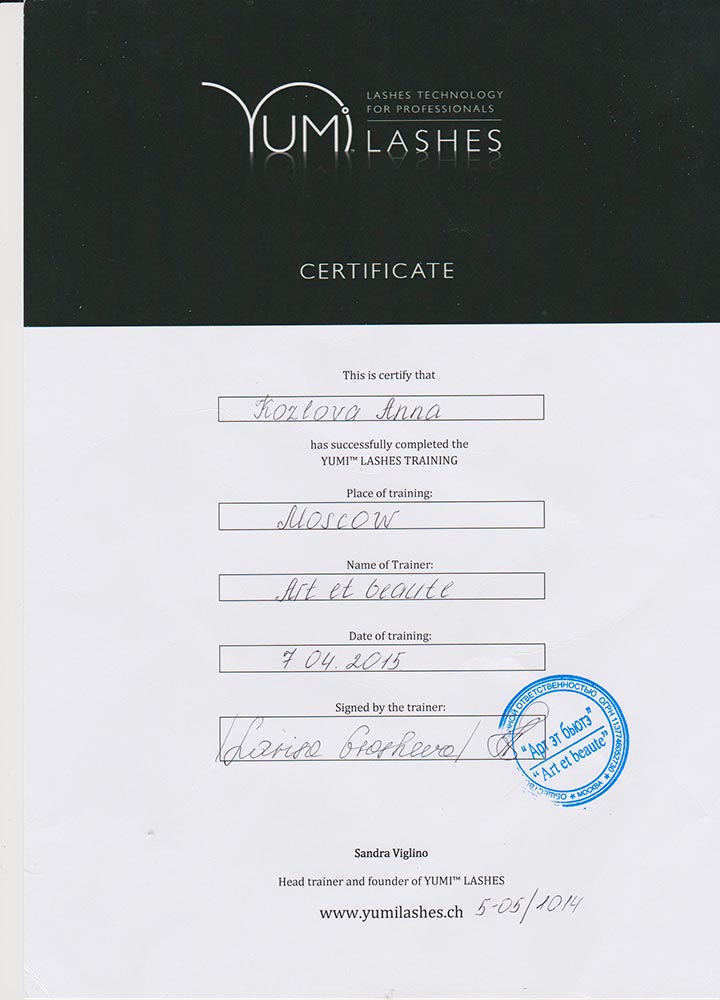 LASHES TECHNOLOGY
FOR PROFESSIONALS
YUMI™ LASHES
CERTIFICATE
This is certify that
Kozlova Anna
has successfully completed the
YUMI™ LASHES TRAINING
Place of training:
Moscow
Name of Trainer:
Art et beaute
Date of training:
7.04.2015
Signed by the trainer:
/Larisa
"Арт эт бьютэ"
"Art et beaute"
ОТВЕТСТВЕННОСТЬЮ ОГРН 1137746052730 * МОСКВА *
Sandra Viglino
Head trainer and founder of YUMI™ LASHES
www.yumilashes.ch 5-05/1014